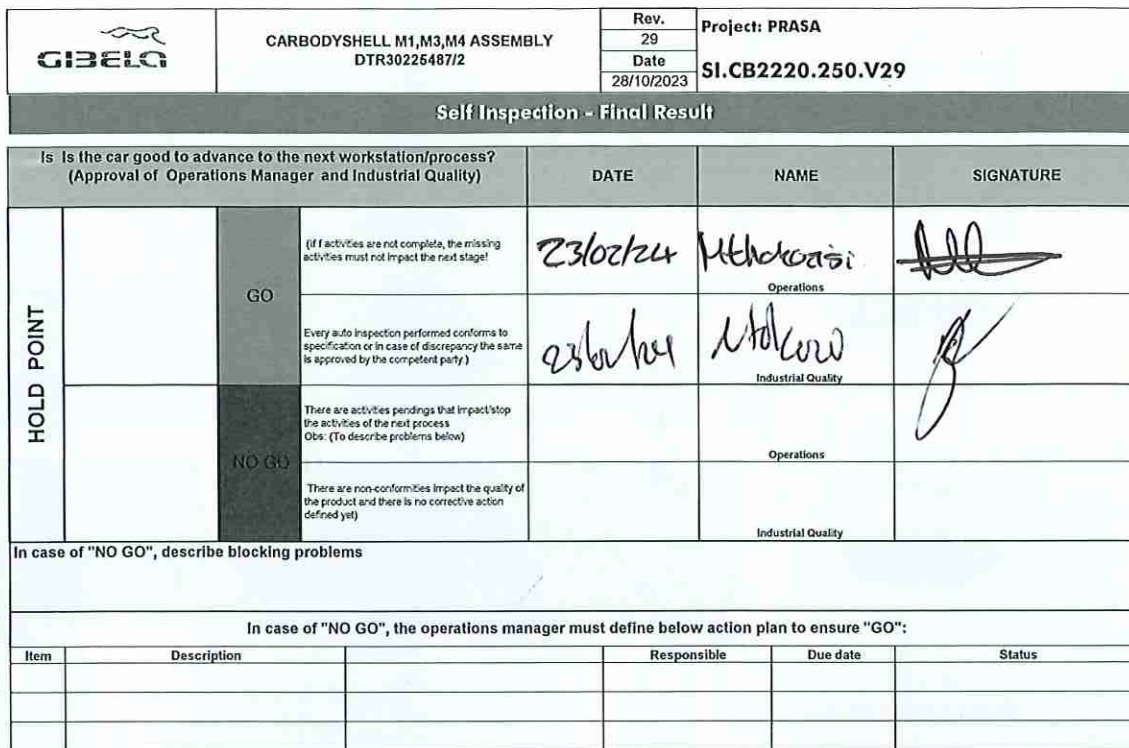 GIBELA
CARBODYSHELL M1,M3,M4 ASSEMBLY
DTR30225487/2
Rev.
29
Date
28/10/2023
Project: PRASA
SI.CB2220.250.V29
Self Inspection - Final Result
Is Is the car good to advance to the next workstation/process?
(Approval of Operations Manager and Industrial Quality)
DATE
NAME
SIGNATURE
HOLD POINT
GO
(if f activities are not complete, the missing
activities must not impact the next stage!
23/02/24
Mthokozisi
Operations
Every auto inspection performed conforms to
specification or in case of discrepancy the same
is approved by the competent party.)
23/02/24
Industrial Quality
NO GO
There are activities pendings that impact/stop
the activities of the next process
Obs: (To describe problems below)
Operations
There are non-conformities impact the quality of
the product and there is no corrective action
defined yet)
Industrial Quality
In case of "NO GO", describe blocking problems
In case of "NO GO", the operations manager must define below action plan to ensure "GO":
Item
Description
Responsible
Due date
Status